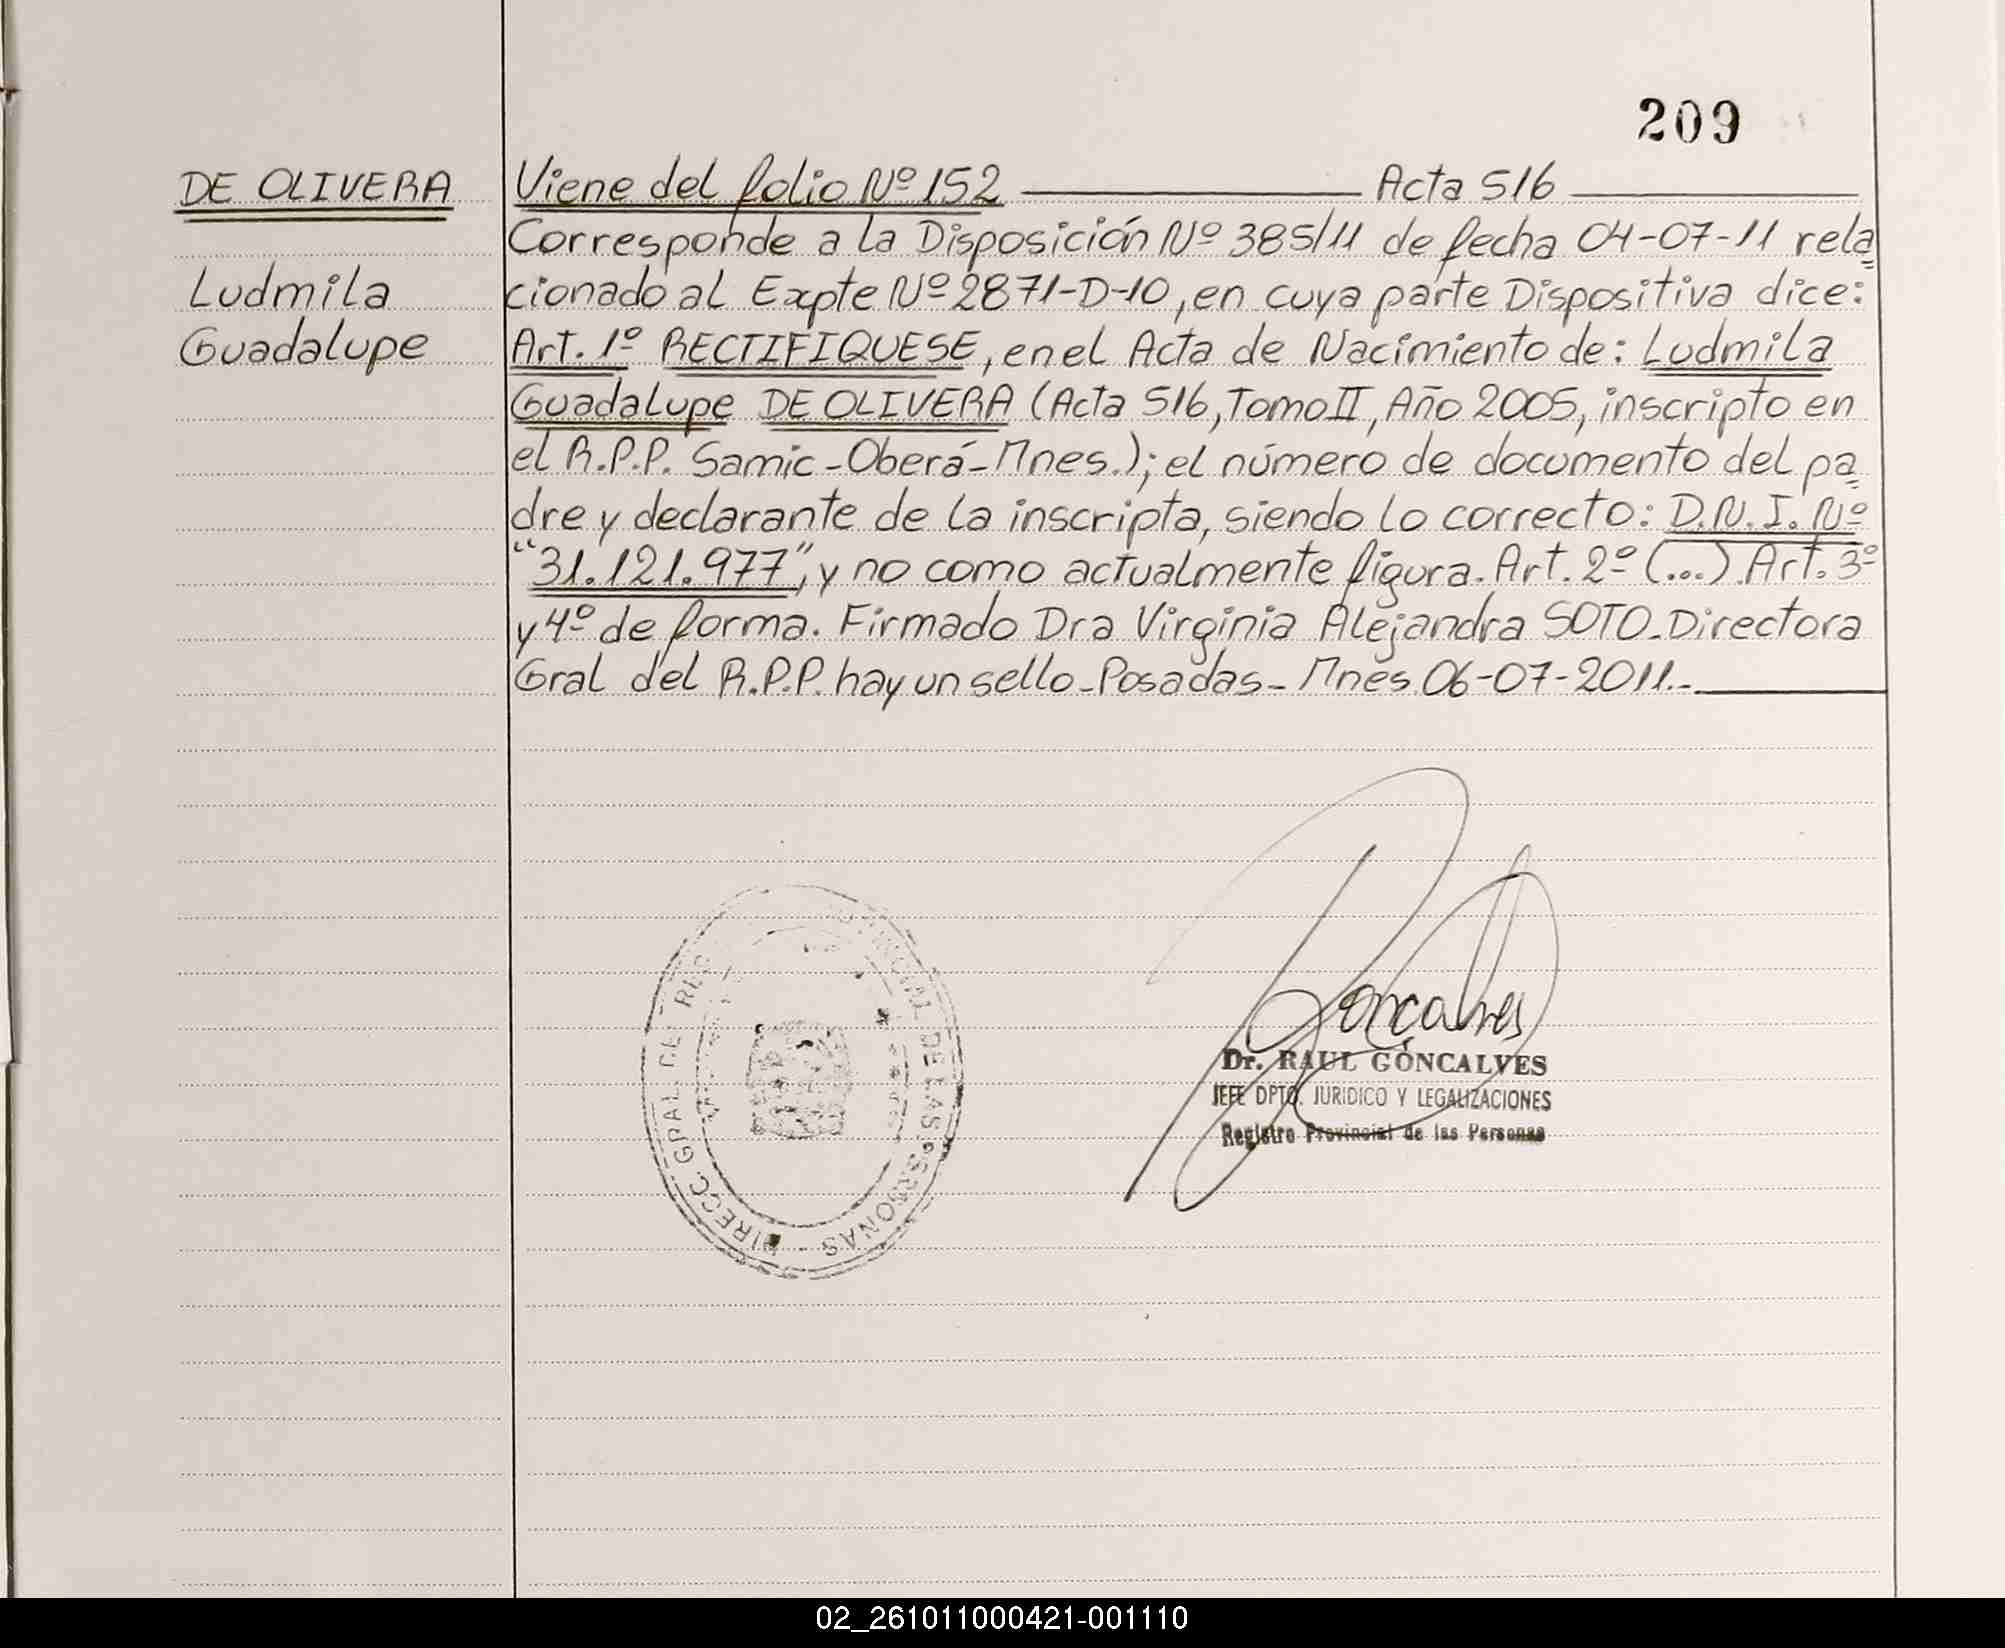 209
DE OLIVERA
Ludmila
Guadalupe
Viene del folio Nº 152 Acta 516
Corresponde a la Disposición Nº 385/11 de fecha 04-07-11 rela
cionado al Expte Nº 2871-D-10, en cuya parte Dispositiva dice:
Art. 1º RECTIFIQUESE, en el Acta de Nacimiento de: Ludmila
Guadalupe DE OLIVERA (Acta 516, Tomo II, Año 2005, inscripto en
el R.P.P. Samic-Oberá-Mnes.); el número de documento del pa
dre y declarante de la inscripta, siendo lo correcto: D.N.I. Nº
"31.121.977", y no como actualmente figura. Art. 2º (...). Art. 3º
y 4º de forma. Firmado Dra Virginia Alejandra SOTO-Directora
Gral del R.P.P. hay un sello-Posadas-Mnes 06-07-2011.-
DIRECC. GRAL DEL REG PROVINCIAL DE LAS PERSONAS -
Goncalves
Dr. RAUL GONCALVES
JEFE DPTO. JURIDICO Y LEGALIZACIONES
Registro Provincial de las Personas
02_261011000421-001110